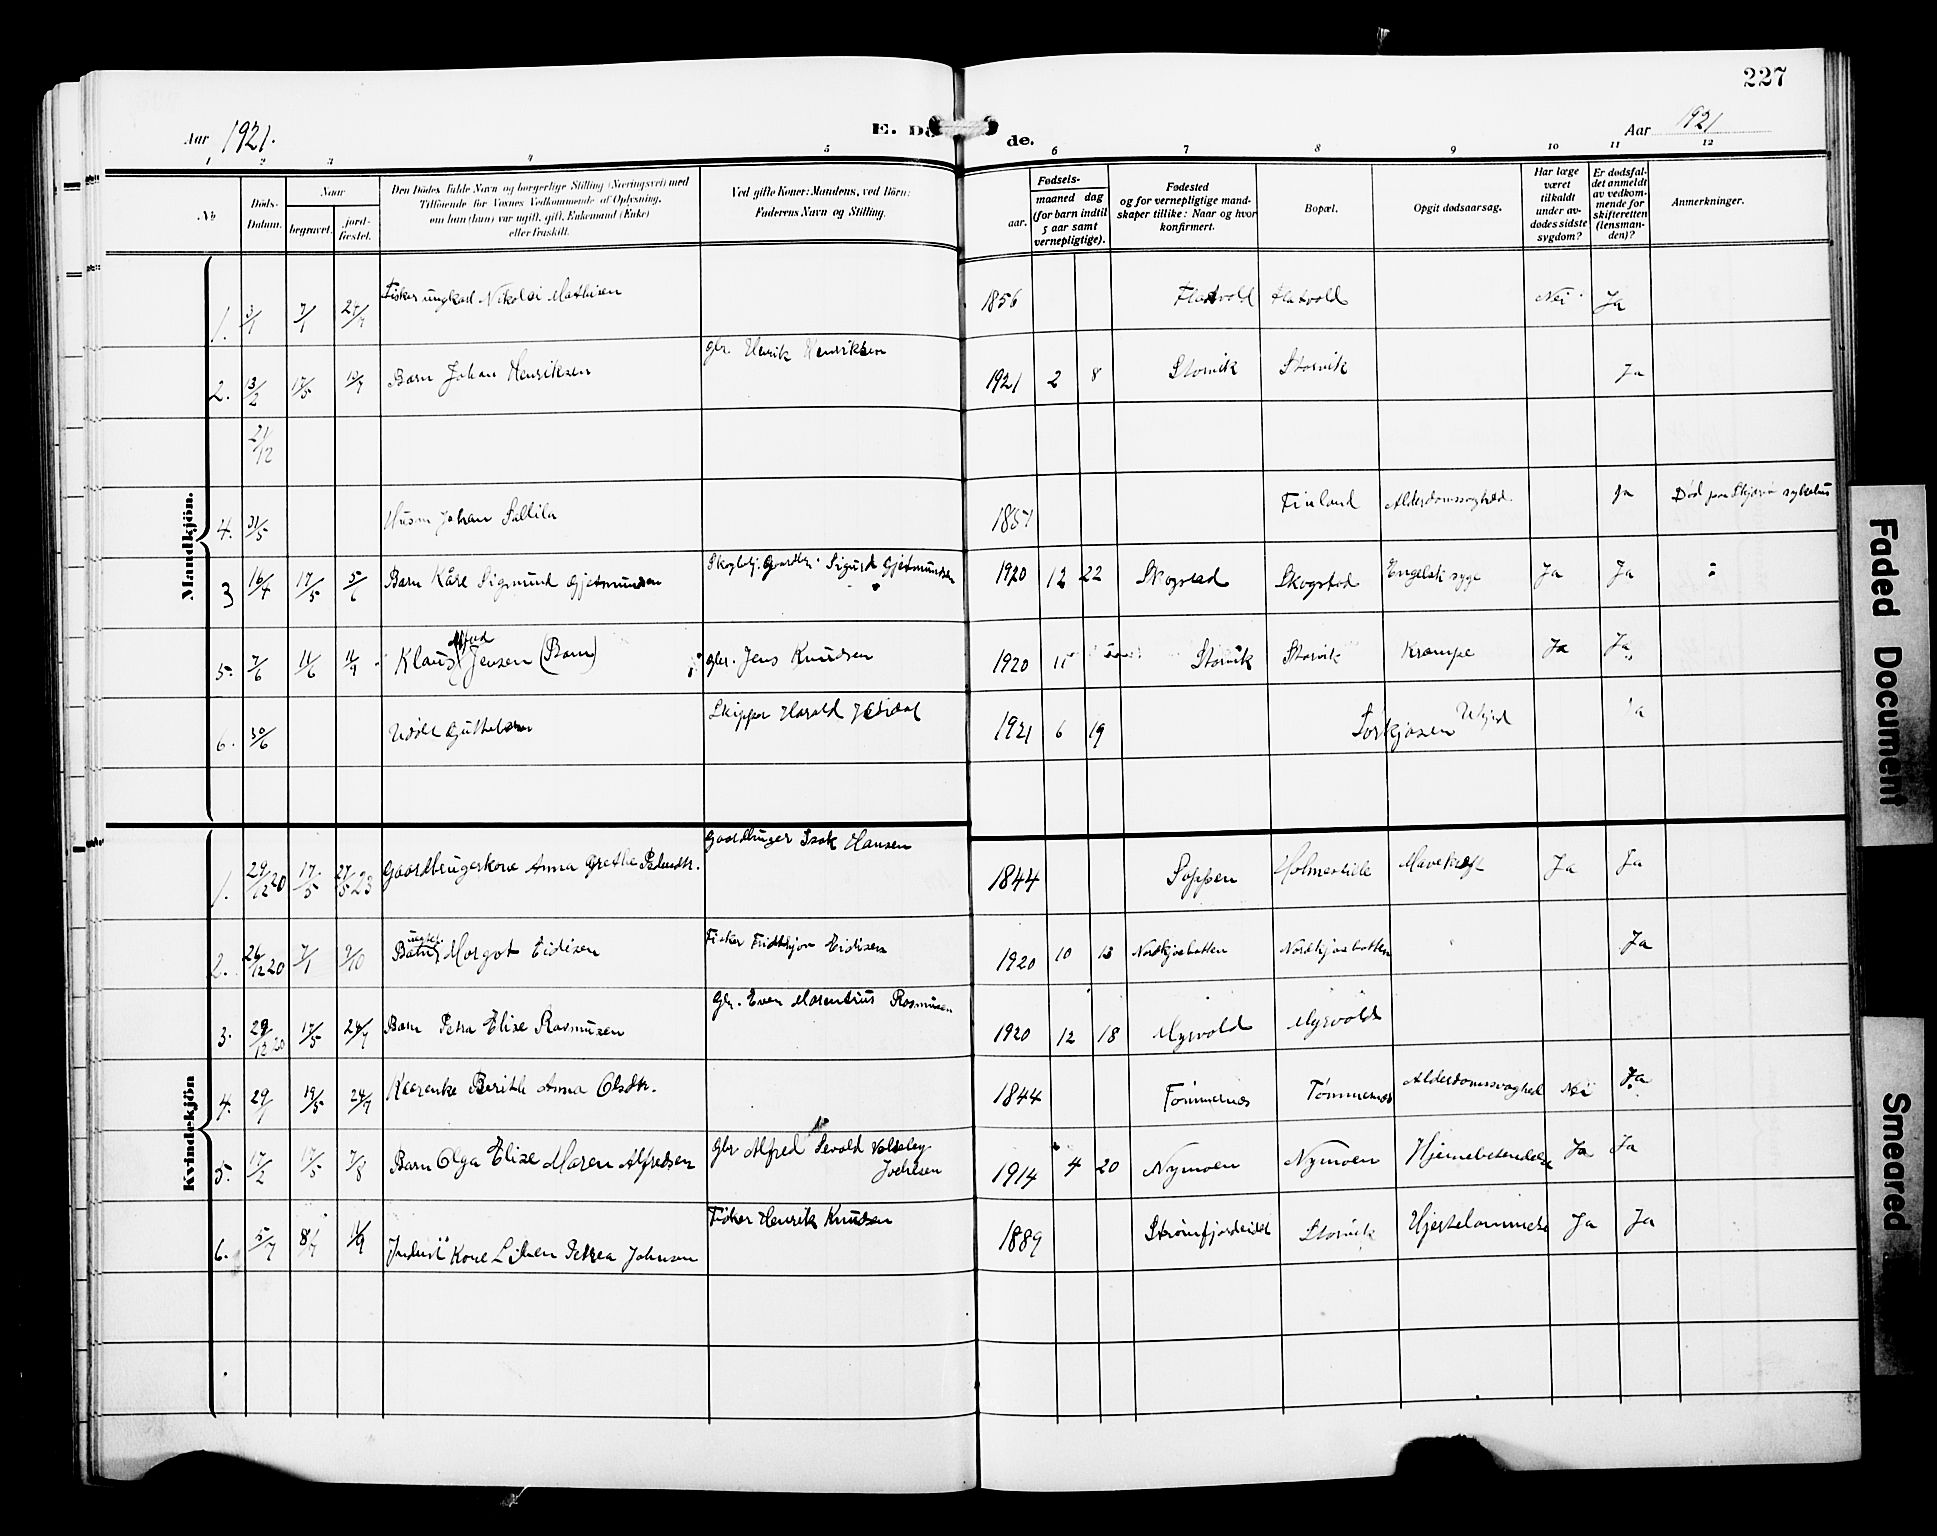 227
Aar 1921.
E. Dö de.
Aar 1921
1 2 3 4 5 6 7 8 9 10 11 12
No
Døds-Datum.
Naar
begravet.
jord-fæstet.
Den Dödes fulde Navn og borgerlige Stilling (Næringsvei) med
Tilföiende for Voxnes Vedkommende af Oplysning,
om han (hun) var ugift, gift, Enkemand (Enke)
eller fraskilt.
Ved gifte Koner: Mandens, ved Börn:
Faderens Navn og Stilling.
Fødsels-
aar.
maaned dag
(for barn indtil
5 aar samt
vernepligtige).
Fødested
og for vernepligtige mand-
skaper tillike: Naar og hvor
konfirmert.
Bopæl.
Opgit dødsaarsag.
Har læge
været
tilkaldt
under av-
dødes sidste
sygdom?
Er dødsfal-
det anmeldt
av vedkom-
mende for
skifteretten
(lensman-
den)?
Anmerkninger.
Mandkjön.
1. 3/1 7/1 24/7 Fisker ungkarl Nikolai Mathisen 1856 Flatvold Flatvold Nei Ja
2. 13/2 17/5 Barn Johan Henriksen gbr. Henrik Henriksen 1921 2 8 Storvik Storvik Ja
21/12
4. 31/5 Husm Johan 1857 Finland Alderdomssvaghed Ja Død paa Skjervø sykehus
3 16/4 17/5 5/6 Barn Kåre Sigmund Gjetmundsen Sigurd Gjetmundsen 1920 12 22 Skogstad Skogstad Engelsk syge Ja Ja
5. 7/6 11/6 11/9 Klaus Alfred Jensen (Barn) gbr. Jens Knudsen 1920 11 Storvik Storvik Krampe Ja Ja
6. 30/6 Guttebarn Skipper Harald 1921 6 19 Sørkjosen Ja
Kvindekjön
1. 29/12 20 17/5 27/5 23 Gaardbrugerkone Anna Grethe Gaardbruger Isak Hansen 1844 Soppen Mavekræft Ja Ja
2. 26/12 20 7/1 9/10 Barn Margot Eidisen Fisker Fridthjov Eidisen 1920 10 13 Nordkjosbotten Nordkjosbotten Ja
3. 29/12 20 17/5 24/7 Barn Petra Elise Rasmussen Gbr. Even Marentius Rasmussen 1920 12 18 Myrvold Myrvold
4. 29/1 19/5 24/7 Berithe Anna Olsdtr. 1844 Tømmernes Tømmernes Alderdomssvaghed Nei Ja
5. 17/2 17/5 7/8 Barn Olga Elise Maren Alfredsen Gbr Alfred Sevald 1914 4 20 Nymoen Nymoen Hjernebetendelse Ja Ja
6. 5/7 8/7 11/9 Kone Petrea Johnsen Fisker Henrik Knudsen 1889 Strømfjordeidet Storvik Hjertelammelse Ja Ja
Faded Document
Smeared